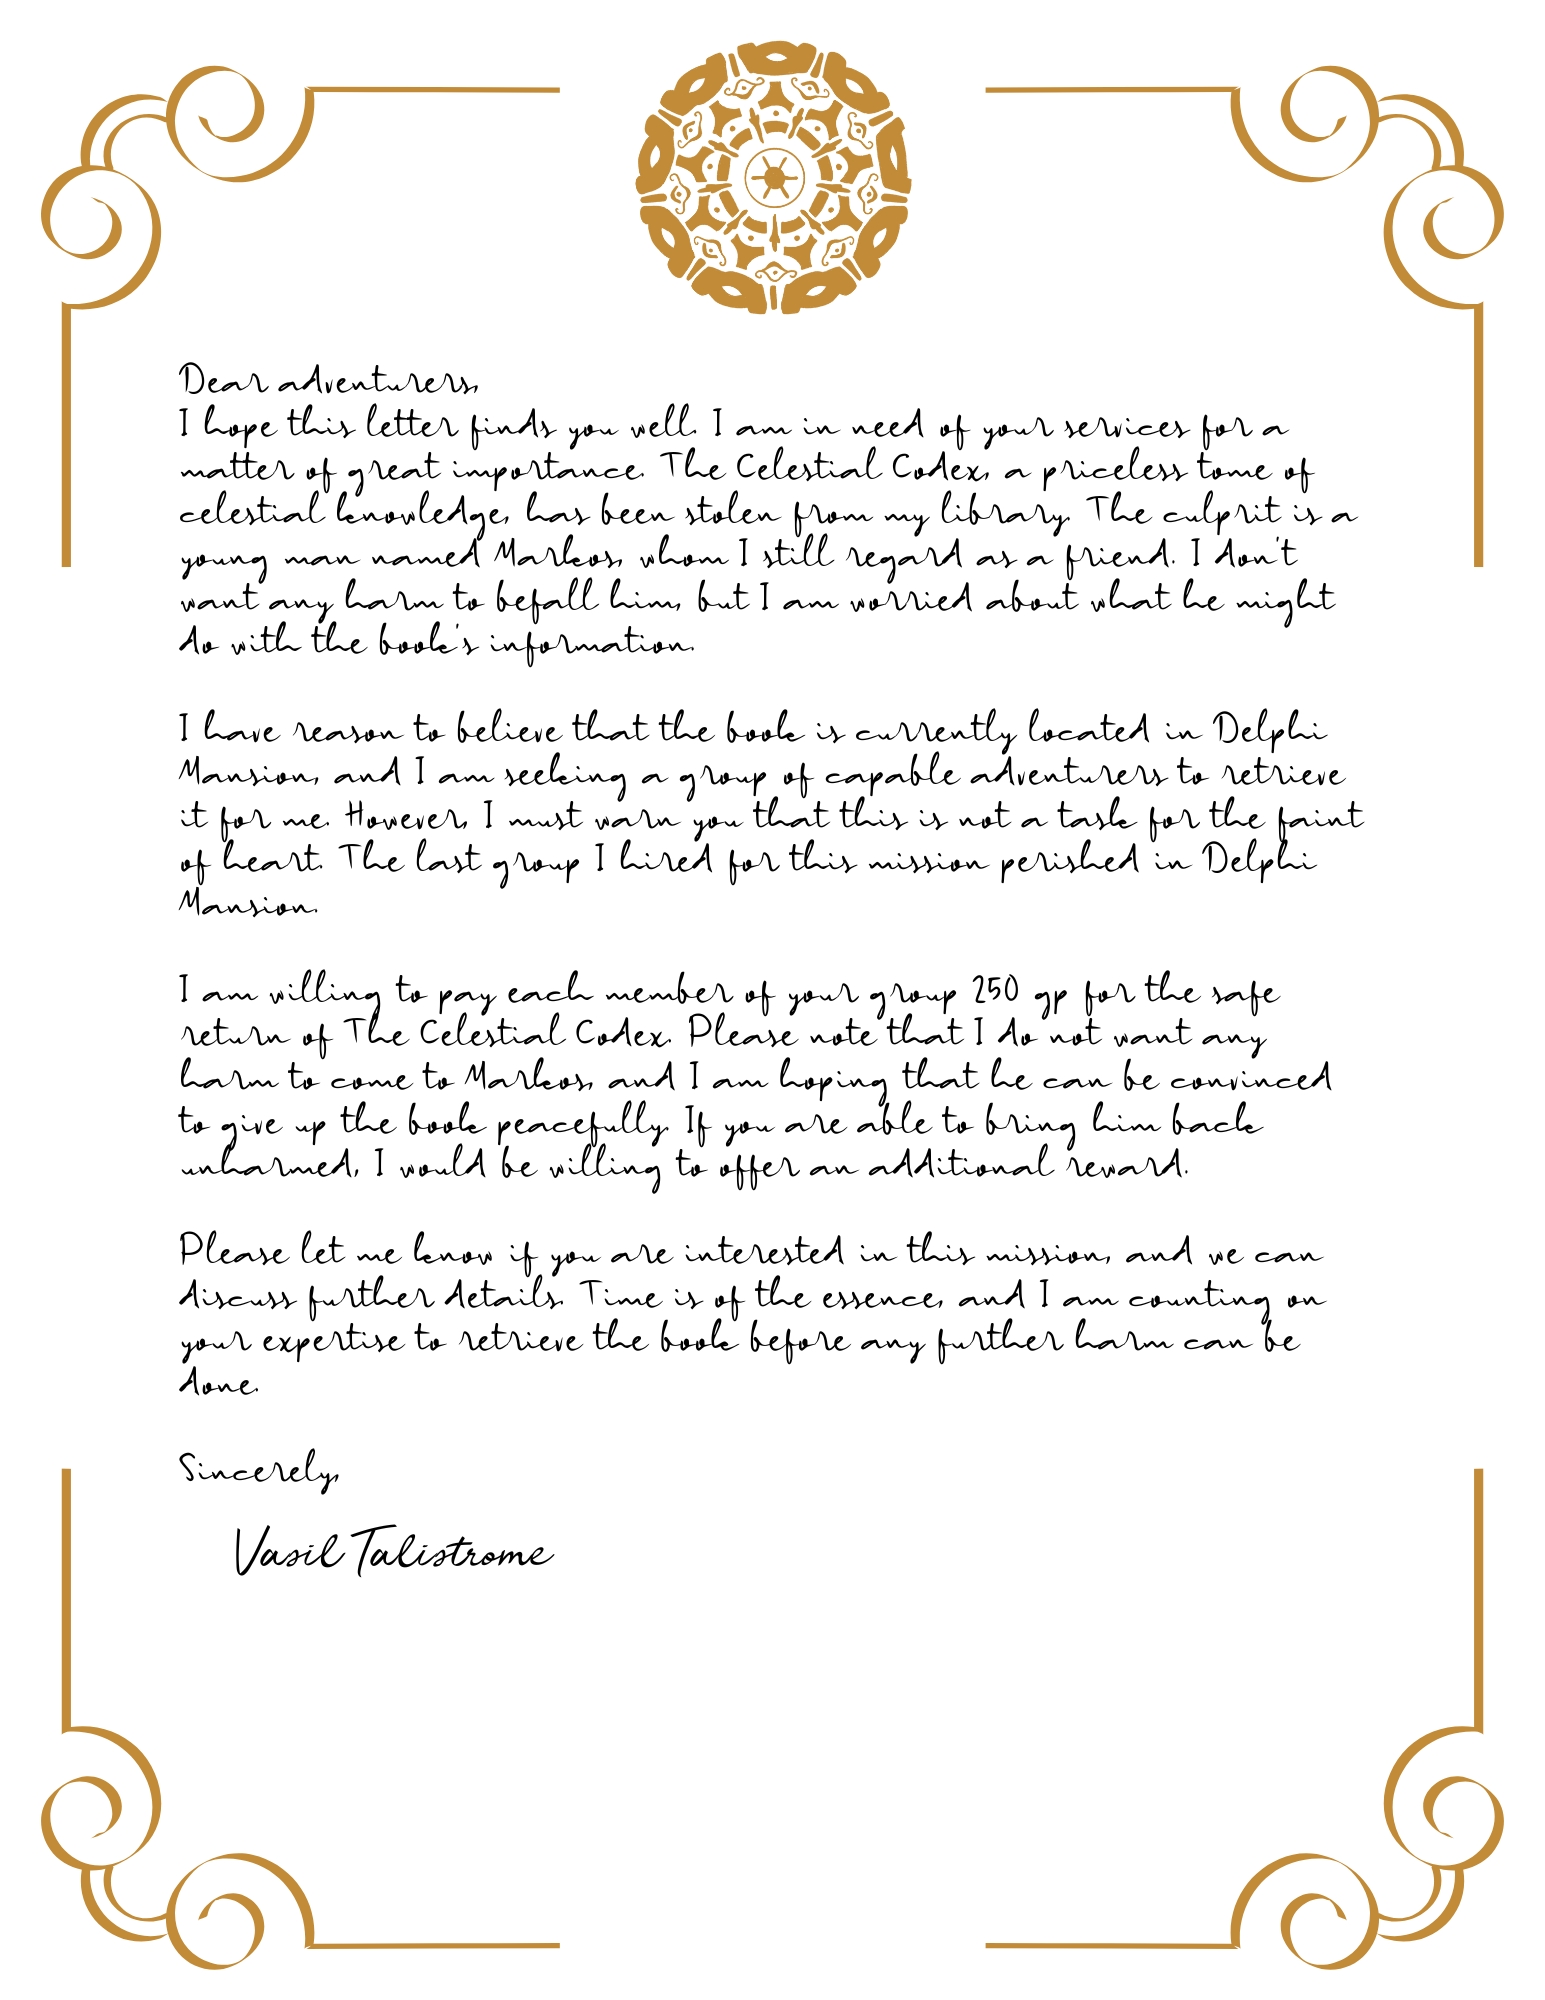 Dear adventurers,
I hope this letter finds you well. I am in need of your services for a
matter of great importance. The Celestial Codex, a priceless tome of
celestial knowledge, has been stolen from my library. The culprit is a
young man named Markos, whom I still regard as a friend. I don't
want any harm to befall him, but I am worried about what he might
do with the book's information.
I have reason to believe that the book is currently located in Delphi
Mansion, and I am seeking a group of capable adventurers to retrieve
it for me. However, I must warn you that this is not a task for the faint
of heart. The last group I hired for this mission perished in Delphi
Mansion.
I am willing to pay each member of your group 250 gp for the safe
return of The Celestial Codex. Please note that I do not want any
harm to come to Markos, and I am hoping that he can be convinced
to give up the book peacefully. If you are able to bring him back
unharmed, I would be willing to offer an additional reward.
Please let me know if you are interested in this mission, and we can
discuss further details. Time is of the essence, and I am counting on
your expertise to retrieve the book before any further harm can be
done.
Sincerely,
Vasil Talistrome